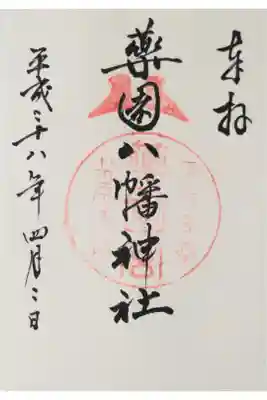 奉拝
薬園八幡神社
平成二十八年四月二日